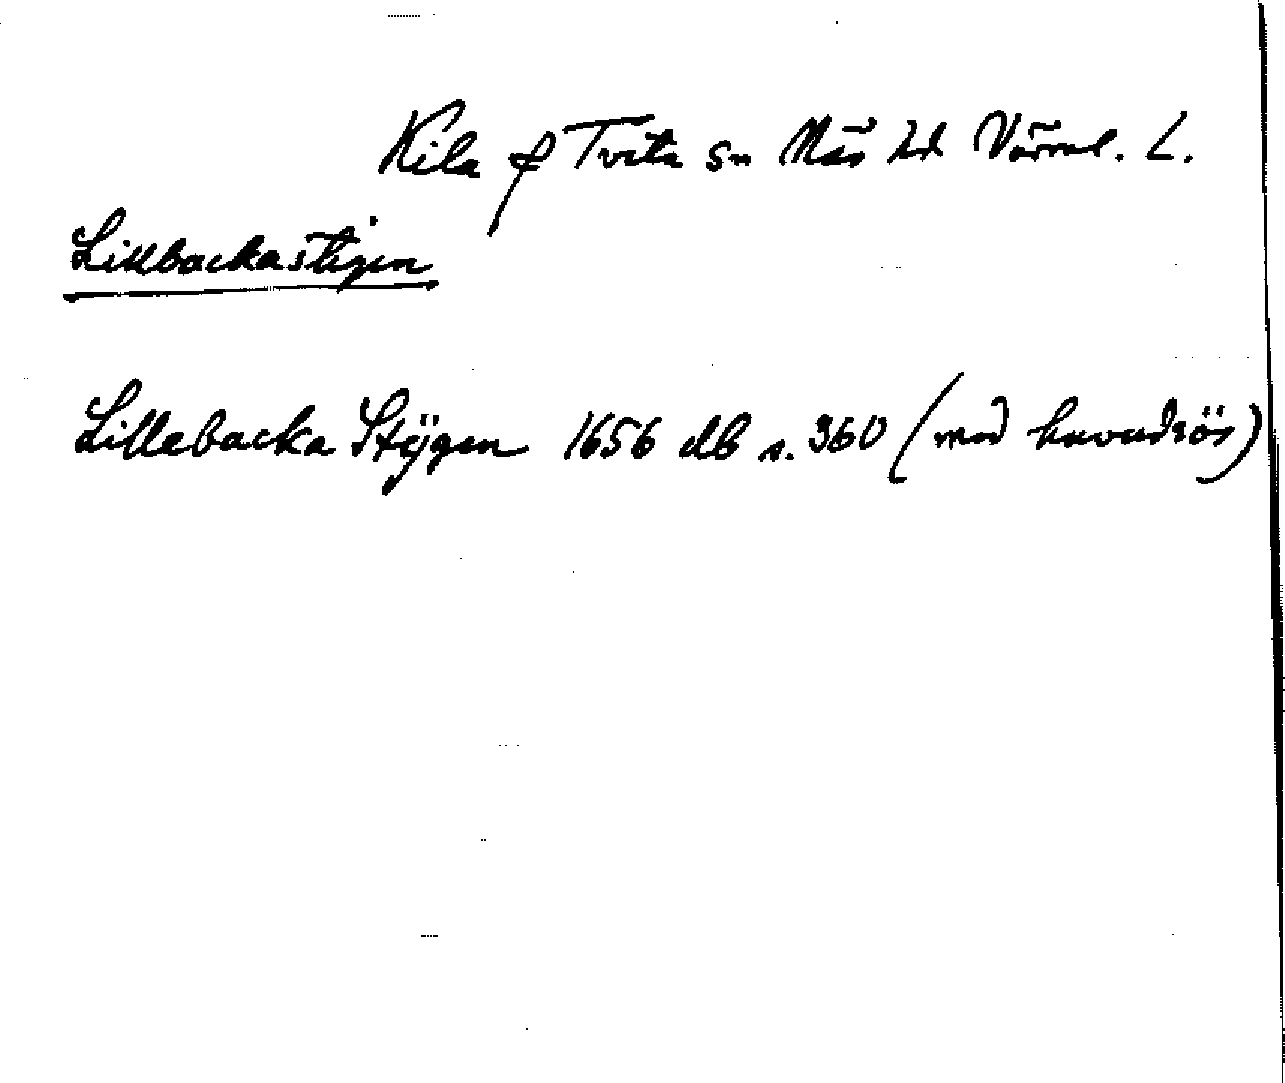 Kila f Tveta sn Näs hd Värml. L.
Lillbackastigen
Lillebacka Stÿgen 1656 db s. 360 (med huvudrös)